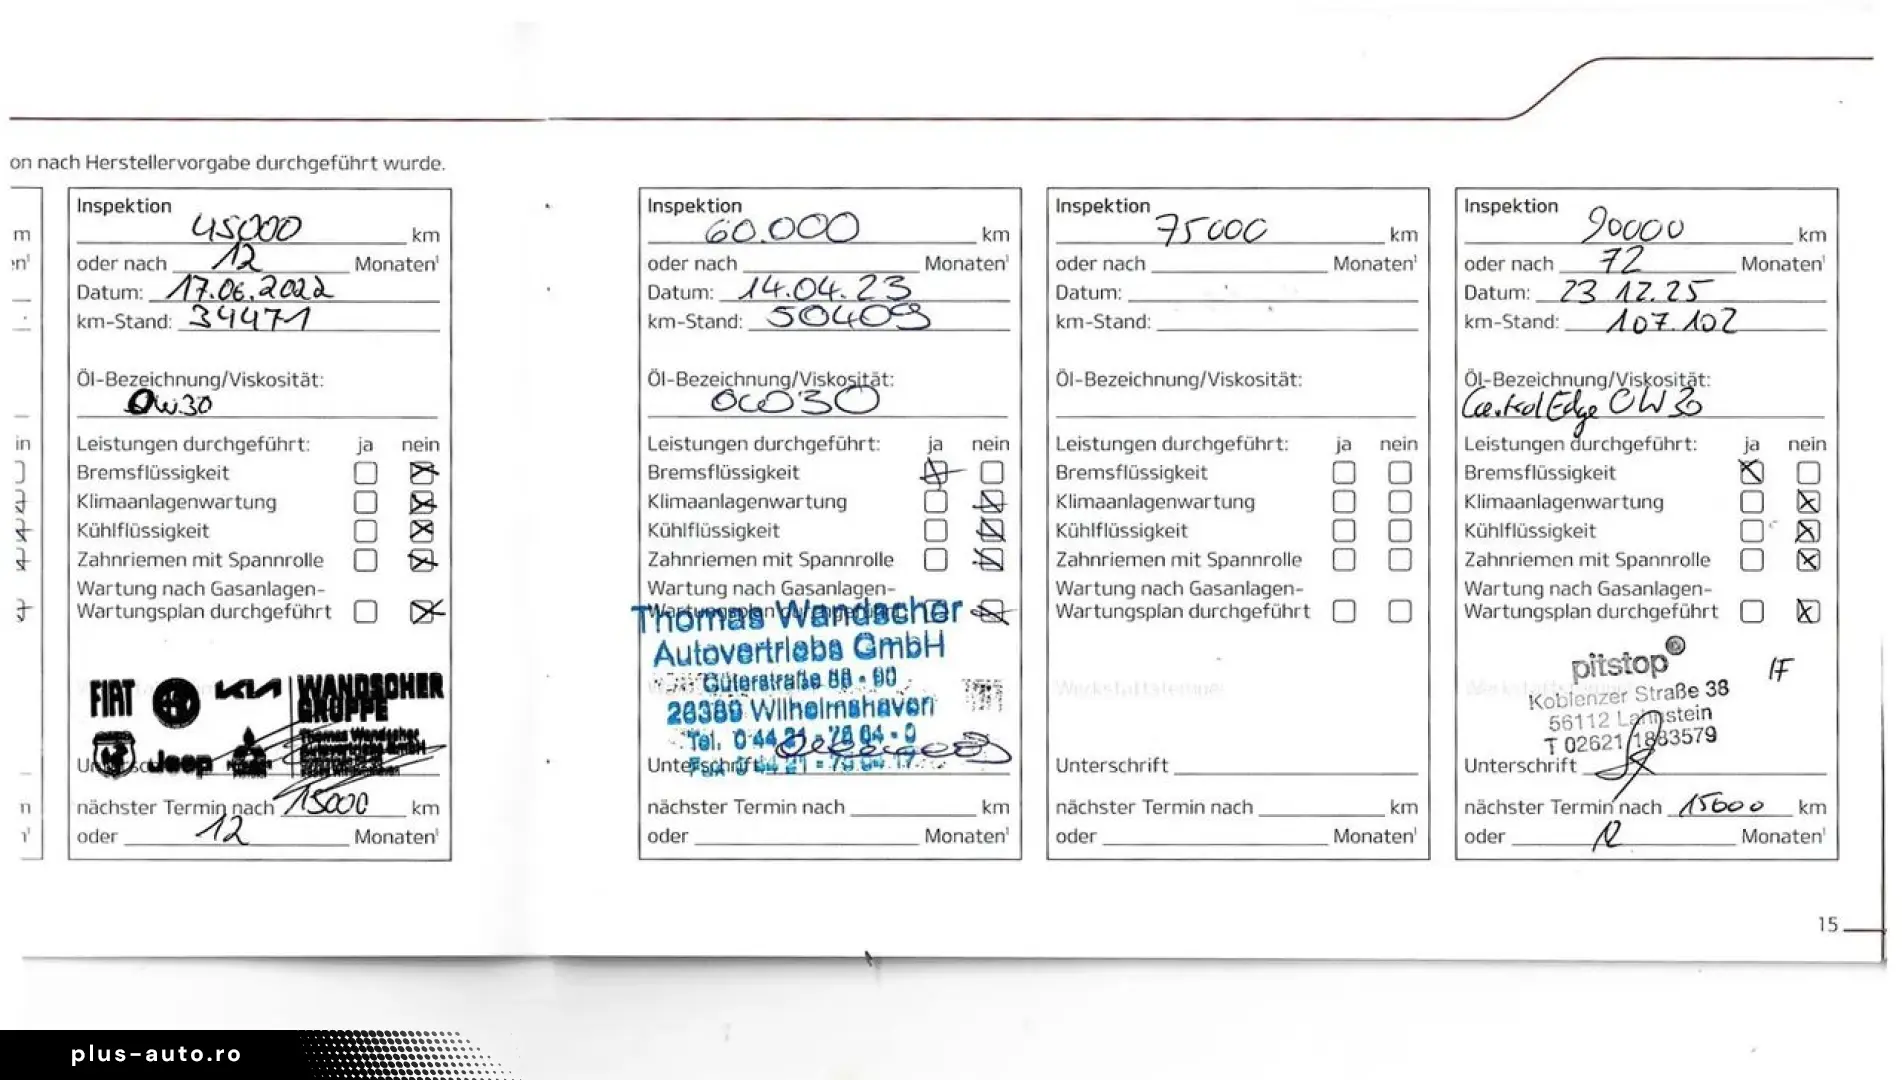 on nach Herstellervorgabe durchgeführt wurde.
m
en¹
in
n
Inspektion
45000 km
oder nach 12 Monaten¹
Datum: 17.06.2022
km-Stand: 34471
Öl-Bezeichnung/Viskosität:
0W30
Leistungen durchgeführt: ja nein
Bremsflüssigkeit
Klimaanlagenwartung
Kühlflüssigkeit
Zahnriemen mit Spannrolle
Wartung nach Gasanlagen-
Wartungsplan durchgeführt
FIAT KIA WANDSCHER
GRUPPE
Thomas Wandscher
Autovertriebs GmbH
Jeep
nächster Termin nach 15000 km
oder 12 Monaten¹
Inspektion
60.000 km
oder nach Monaten¹
Datum: 14.04.23
km-Stand: 50409
Öl-Bezeichnung/Viskosität:
0W30
Leistungen durchgeführt: ja nein
Bremsflüssigkeit
Klimaanlagenwartung
Kühlflüssigkeit
Zahnriemen mit Spannrolle
Wartung nach Gasanlagen-
Wartungsplan durchgeführt
Thomas Wandscher
Autovertriebs GmbH
Güterstraße 88 - 90
26389 Wilhelmshaven
Tel. 0 44 21 - 78 84 - 0
Unterschrift
nächster Termin nach km
oder Monaten¹
Inspektion
75000 km
oder nach Monaten¹
Datum:
km-Stand:
Öl-Bezeichnung/Viskosität:
Leistungen durchgeführt: ja nein
Bremsflüssigkeit
Klimaanlagenwartung
Kühlflüssigkeit
Zahnriemen mit Spannrolle
Wartung nach Gasanlagen-
Wartungsplan durchgeführt
Werkstattstempel
Unterschrift
nächster Termin nach km
oder Monaten¹
Inspektion
90000 km
oder nach 72 Monaten¹
Datum: 23 12.25
km-Stand: 107.102
Öl-Bezeichnung/Viskosität:
Castrol Edge 0W30
Leistungen durchgeführt: ja nein
Bremsflüssigkeit
Klimaanlagenwartung
Kühlflüssigkeit
Zahnriemen mit Spannrolle
Wartung nach Gasanlagen-
Wartungsplan durchgeführt
pitstop
Koblenzer Straße 38
56112 Lahnstein
T 02621 1883579
Unterschrift
nächster Termin nach 15000 km
oder 12 Monaten¹
15
plus-auto.ro